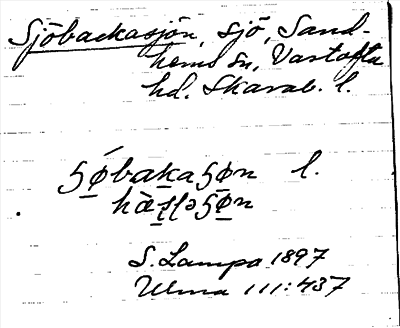 Sjöbackasjön, sjö, Sand-
hems sn, Vartofta
hd. Skarab. l.
ʂǿbakaʂøn l.
hàʂl̥əʂøn
S. Lampa 1897
Ulma 111:437